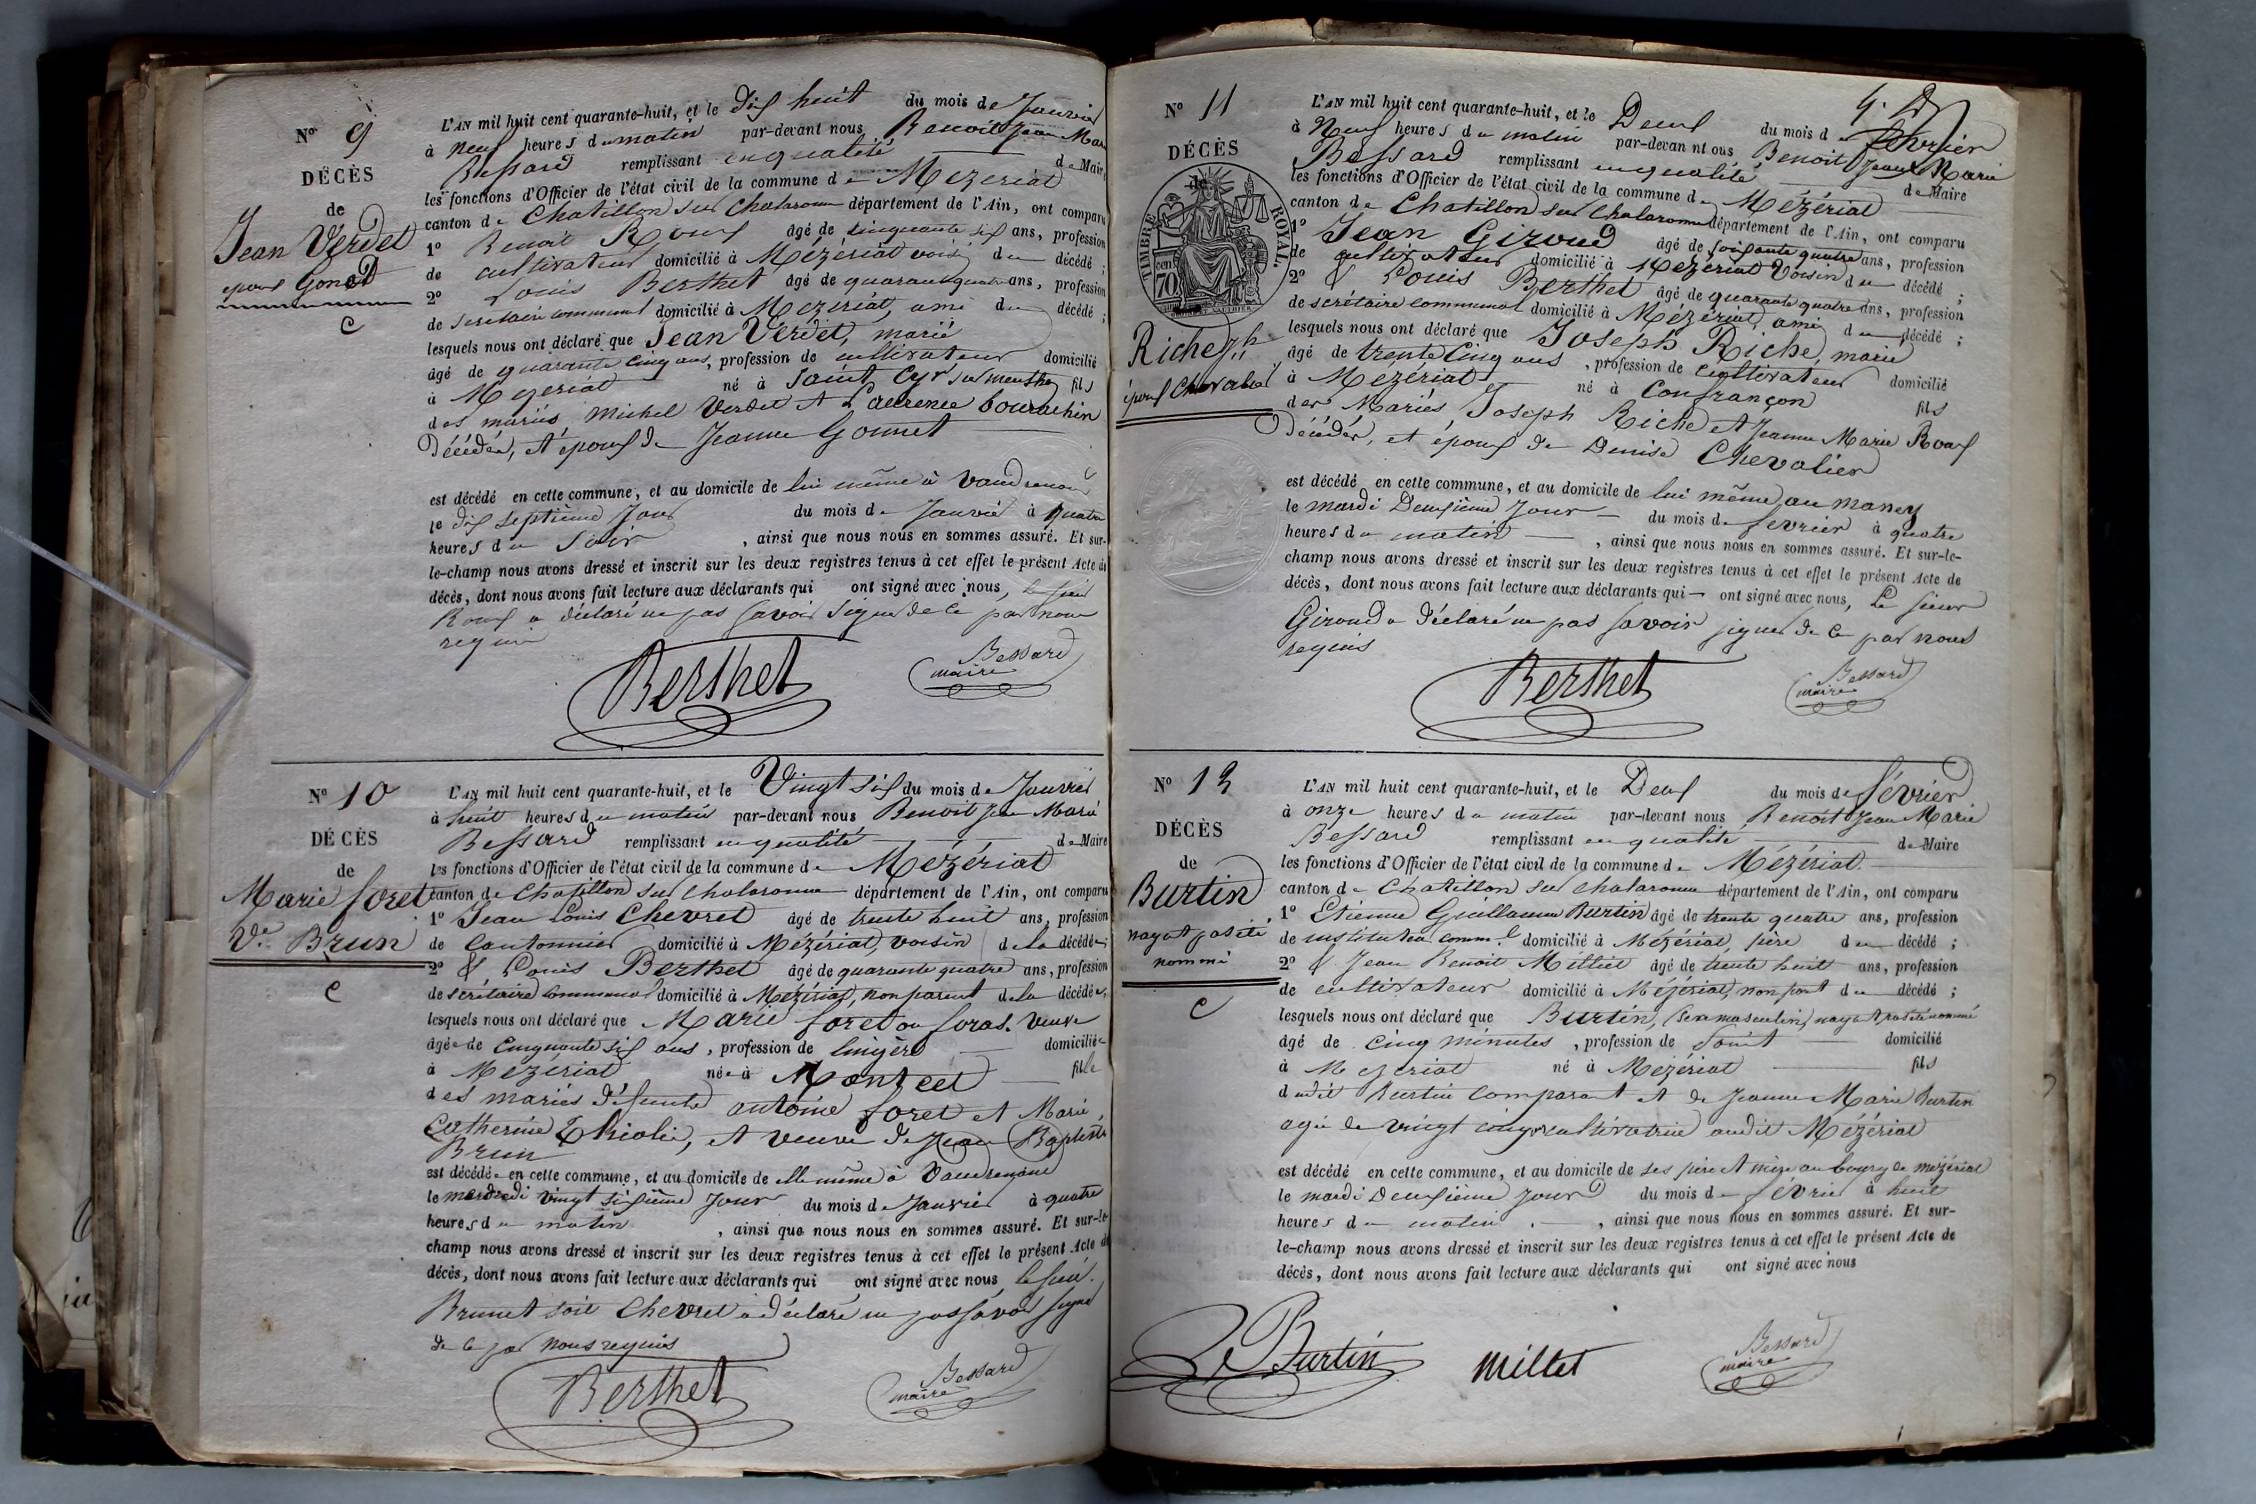 N° 9
DÉCÈS
de
Jean Verdet
époux Gonet
C
L'AN mil huit cent quarante-huit, et le dix huit du mois de Janvier
à neuf heures du matin par-devant nous Benoit Jean Marie
Bessard remplissant en qualité de Maire
les fonctions d'Officier de l'état civil de la commune de Mézériat
canton de Chatillon sur Chalaronne département de l'Ain, ont comparu
1° Benoit Roux âgé de cinquante six ans, profession
de cultivateur domicilié à Mézériat voisin du décédé ;
2° Louis Berthet âgé de quarante quatre ans, profession
de secrétaire communal domicilié à Mézériat, ami du décédé ;
lesquels nous ont déclaré que Jean Verdet, marié
âgé de quarante cinq ans, profession de cultivateur domicilié
à Mézériat né à Saint Cyr sur menthon fils
des mariés Michel Verdet et Laurence bourachin
Décédés, et époux de Jeanne Gonnet
est décédé en cette commune, et au domicile de lui même à
le dix septième Jour du mois de Janvier à quatre
heures du Soir, ainsi que nous nous en sommes assuré. Et sur-
le-champ nous avons dressé et inscrit sur les deux registres tenus à cet effet le présent Acte de
décès, dont nous avons fait lecture aux déclarants qui ont signé avec nous, le sieur
Roux a déclaré ne pas savoir signer de ce par nous
requis
Berthet
Bessard
maire
N° 10
DÉCÈS
de
Marie foret
Ve Brun
C
L'AN mil huit cent quarante-huit, et le Vingt six du mois de Janvier
à huit heures du matin par-devant nous Benoit Jean Marie
Bessard remplissant en qualité de Maire
les fonctions d'Officier de l'état civil de la commune de Mézériat
canton de Chatillon sur Chalaronne département de l'Ain, ont comparu
1° Jean Louis Chevret âgé de trente huit ans, profession
de Cantonnier domicilié à Mézériat, voisin de la décédée ;
2° & Louis Berthet âgé de quarante quatre ans, profession
de secrétaire communal domicilié à Mézériat, non parent de la décédée ;
lesquels nous ont déclaré que Marie foret ou foras. Veuve
âgée de Cinquante six ans, profession de lingère domiciliée
à Mézériat née à Montcet fille
des mariés défunts antoine foret et Marie
Catherine, et veuve de Jean Baptiste
Brun
est décédée en cette commune, et au domicile de elle même à
le mercredi vingt sixième Jour du mois de Janvier à quatre
heures du matin, ainsi que nous nous en sommes assuré. Et sur-le-
champ nous avons dressé et inscrit sur les deux registres tenus à cet effet le présent Acte de
décès, dont nous avons fait lecture aux déclarants qui ont signé avec nous le sieur
Brunet soit Chevret a déclaré ne pas savoir signer
de ce par nous requis
Berthet
Bessard
maire
N° 11
DÉCÈS
de
TIMBRE ROYAL.
70 cen
Riche Jh
époux Chevalier
L'AN mil huit cent quarante-huit, et le Deux du mois de février
à Neuf heures du matin par-devant nous Benoit Jean Marie
Bessard remplissant en qualité de Maire
les fonctions d'Officier de l'état civil de la commune de Mézériat
canton de Chatillon sur Chalaronne département de l'Ain, ont comparu
1° Jean Giroud âgé de soixante quatre ans, profession
de cultivateur domicilié à Mézériat Voisin du décédé ;
2° & Louis Berthet âgé de quarante quatre ans, profession
de secrétaire communal domicilié à Mézériat, ami du décédé ;
lesquels nous ont déclaré que Joseph Riche, marié
âgé de trente Cinq ans, profession de Cultivateur domicilié
à Mézériat né à Confrançon fils
des Mariés Joseph Riche et Jeanne Marie Roux
Décédés, et époux de Denise Chevalier
est décédé en cette commune, et au domicile de lui même au maney
le mardi Deuxième Jour du mois de février à quatre
heures du matin, ainsi que nous nous en sommes assuré. Et sur-le-
champ nous avons dressé et inscrit sur les deux registres tenus à cet effet le présent Acte de
décès, dont nous avons fait lecture aux déclarants qui ont signé avec nous, Le sieur
Giroud a déclaré ne pas savoir signer de ce par nous
requis
Berthet
Bessard
maire
N° 12
DÉCÈS
de
Burtin
nayant pas été
nommé
C
L'AN mil huit cent quarante-huit, et le Deux du mois de février
à onze heures du matin par-devant nous Benoit Jean Marie
Bessard remplissant en qualité de Maire
les fonctions d'Officier de l'état civil de la commune de Mézériat
canton de Chatillon sur Chalaronne département de l'Ain, ont comparu
1° Etienne Guillaume Burtin âgé de trente quatre ans, profession
de instituteur comm.l domicilié à Mézériat, père du décédé ;
2° & Jean Benoit Milliet âgé de trente huit ans, profession
de cultivateur domicilié à Mézériat, non part du décédé ;
lesquels nous ont déclaré que Burtin, (sexe masculin) nayant pas été nommé
âgé de cinq minutes, profession de domicilié
à Mézériat né à Mézériat fils
dudit Burtin comparant et de Jeanne Marie Burtin
agée de vingt cinq cultivatrice audit Mézériat
est décédé en cette commune, et au domicile de ses père et mère au bourg de mézériat
le mardi Deuxième Jour du mois de février à huit
heures du matin, ainsi que nous nous en sommes assuré. Et sur-
le-champ nous avons dressé et inscrit sur les deux registres tenus à cet effet le présent Acte de
décès, dont nous avons fait lecture aux déclarants qui ont signé avec nous
Burtin
Millet
Bessard
maire